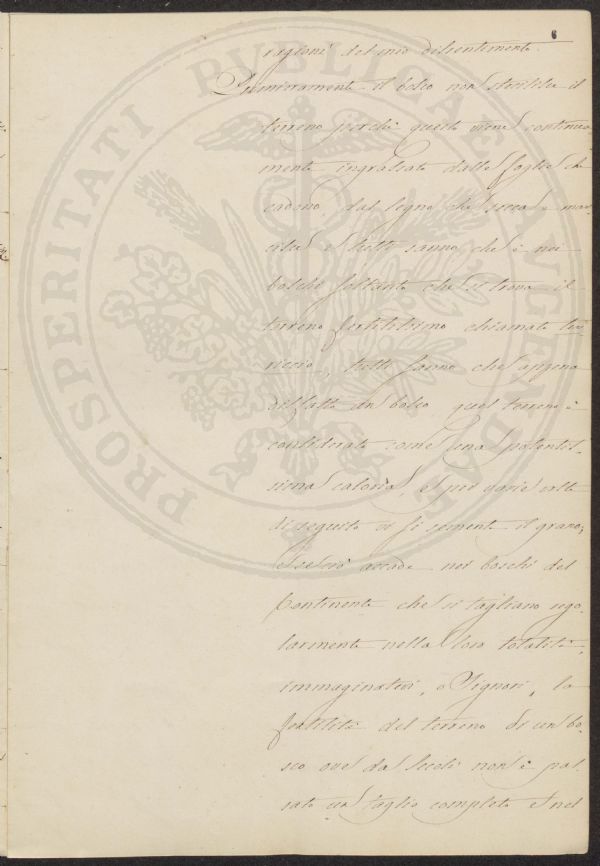 6
ragioni del mio dissentimento.
Primieramente il bosco non sterilisce il
terreno perchè questo viene continua
mente ingrassato dalle foglie che
cadono, dal legno che secca e mar-
cisce e tutti sanno che è nei
boschi soltanto che si trova il
terreno fertilissimo chiamato ter
riccio, tutti sanno che appena
disfatto un bosco quel terreno è
considerato come una potentis-
sima caloria, e per varie volte
di seguito vi si sementa il grano;
E se ciò accade nei boschi del
Continente che si tagliano rego-
larmente nella loro totalità,
immaginatevi, o Signori, la
fertilità del terreno di un bo-
sco ove da secoli non è pas-
sato un taglio completo e nel
PROSPERITATI PUBLICAE AUGENDAE